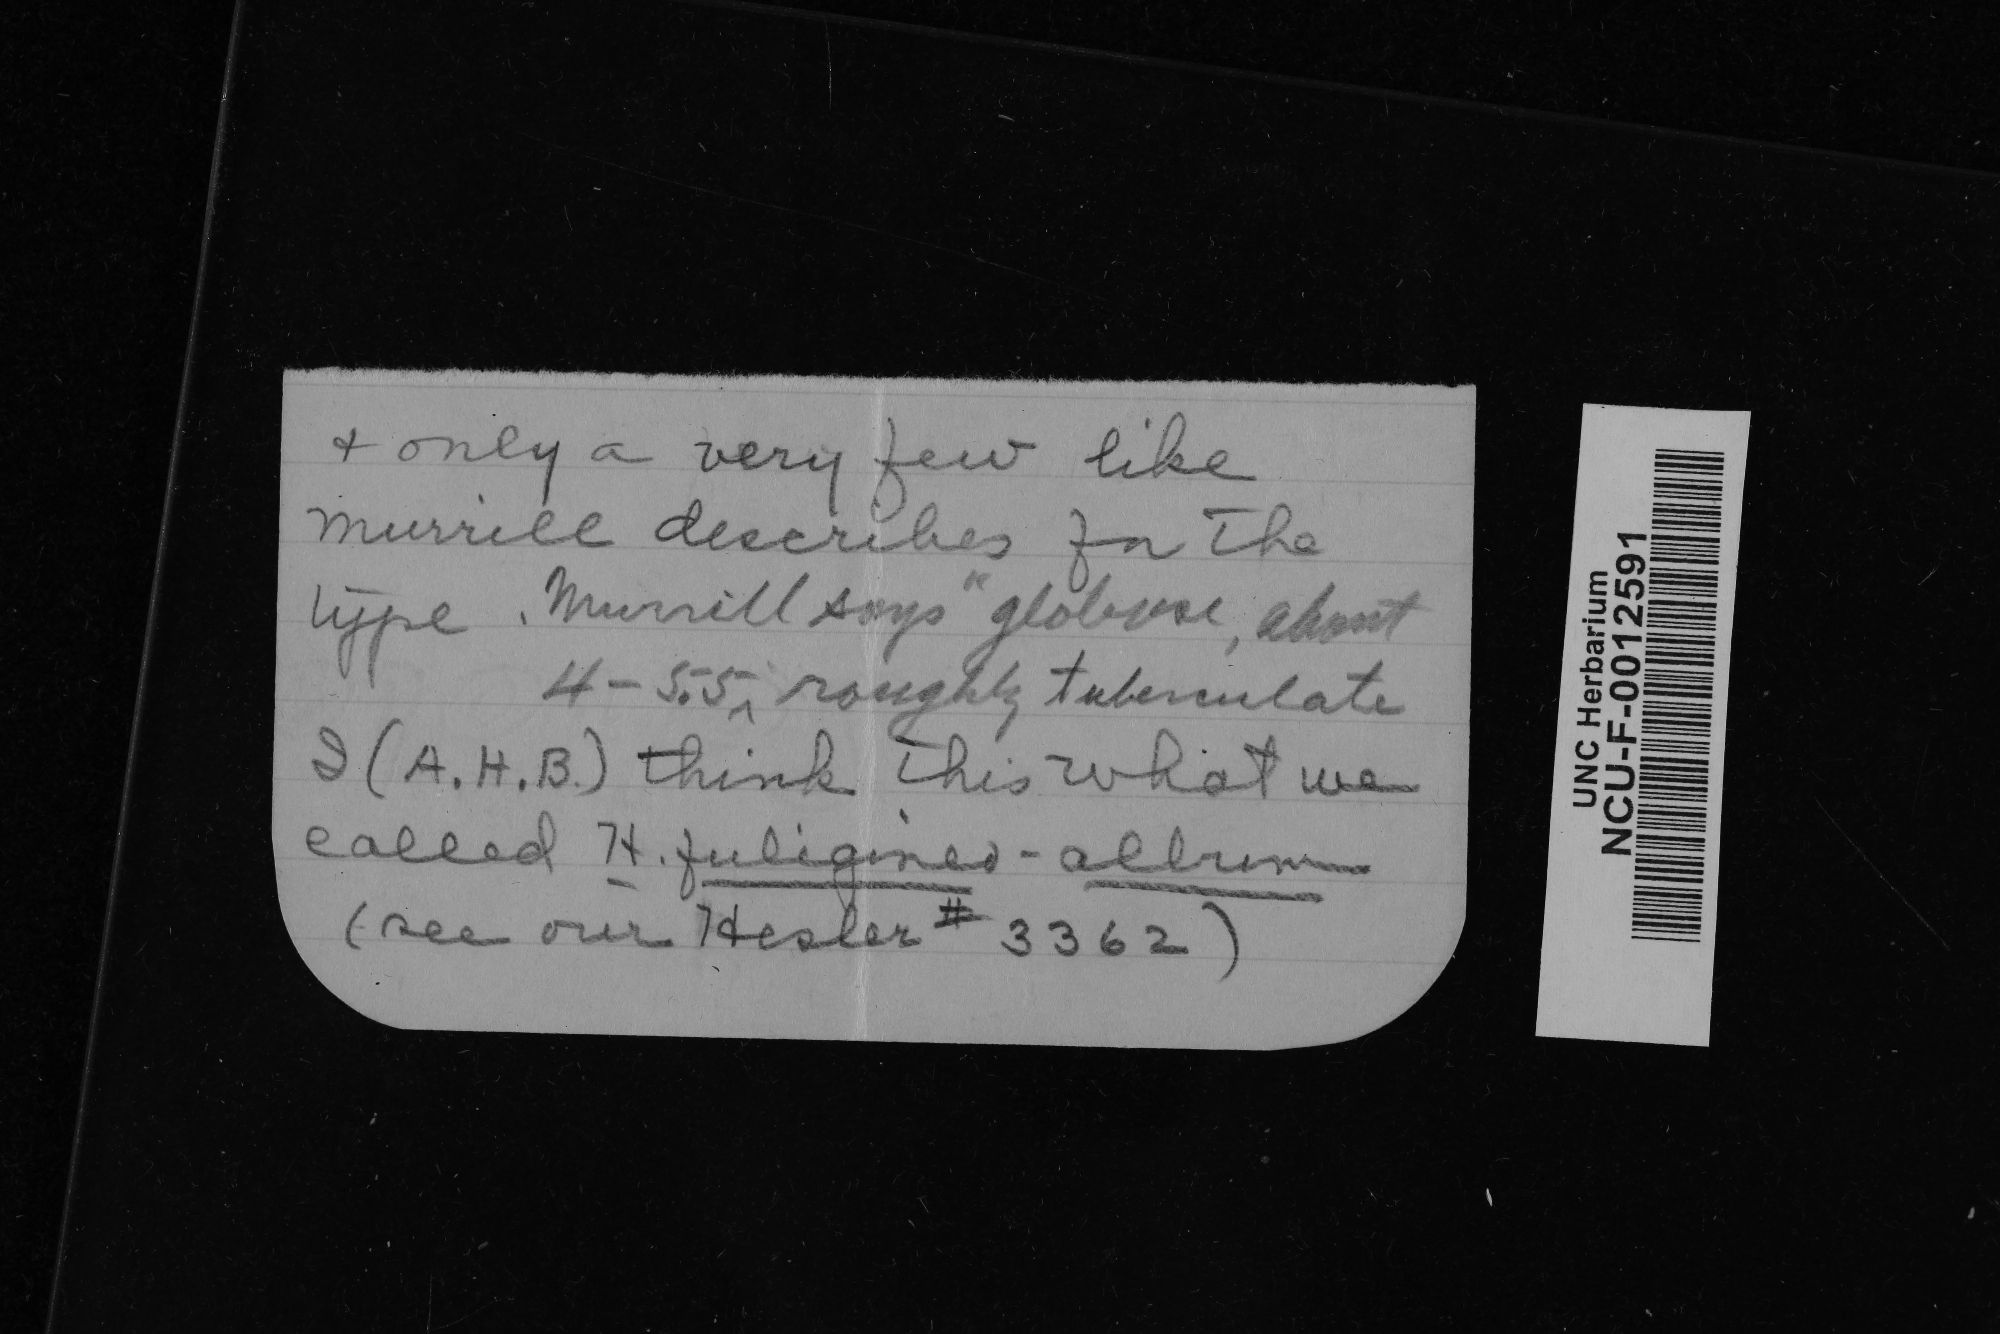 + only a very few like
Murrill describes for the
type. Murrill says "globose, about
4-5.5, roughly tuberculate
I (A.H.B.) think this what we
called H. fuligineo-album
(see our Hesler # 3362)
UNC Herbarium
NCU-F-0012591